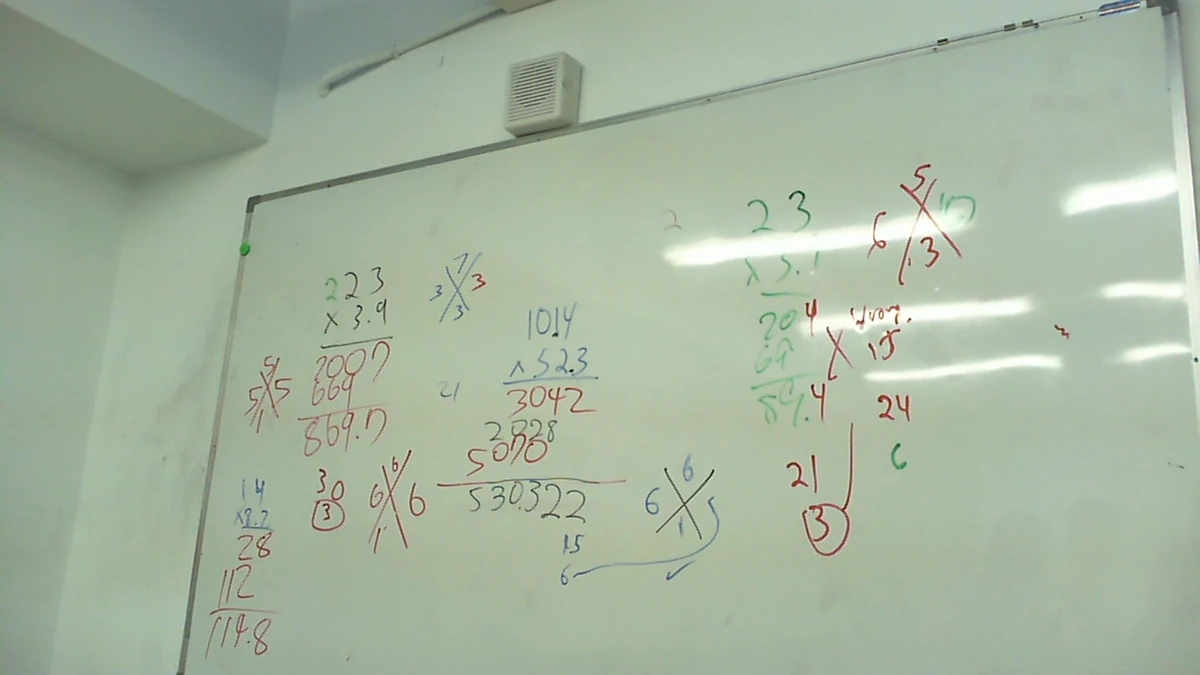 223
x 3.9
2007
669
869.7
7
3 3
3
5 5
1
14
x8.2
28
112
114.8
30
3
6
6 6
1
21
1014
x 523
3042
2028
5070
530322
6
6
1
15
6
2
23
204
69
89.4
5
6
3
Wrong.
15
24
6
21
3